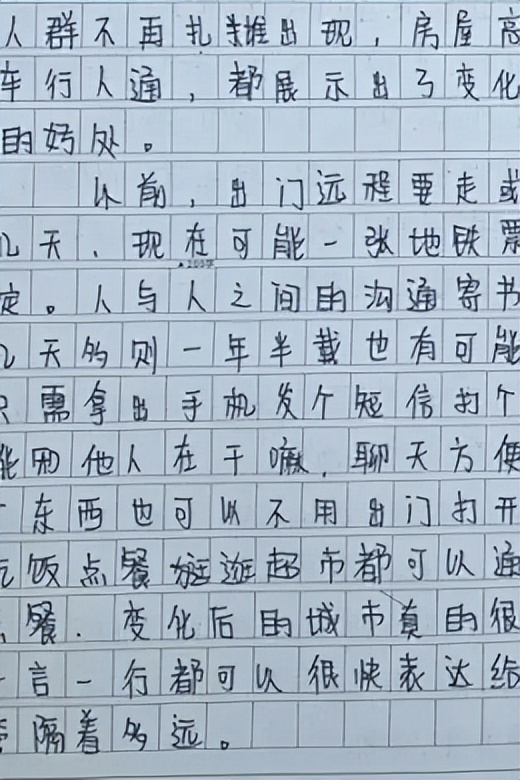 人群不再扎堆出现，房屋高
车行人通，都展示出了变化
的好处。
以前，出门远程要走或
几天、现在可能一张地铁票
定。人与人之间的沟通寄书
几天多则一年半载也有可能
只需拿出手机发个短信打个
能和他人在干嘛，聊天方便
东西也可以不用出门打开
吃饭点餐逛逛超市都可以通
餐．变化后的城市真的很
言一行都可以很快表达给
隔着多远。